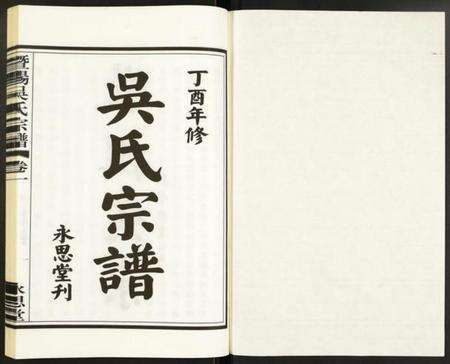 丁酉年修
吳氏宗譜
永思堂刊
暨陽吳氏宗譜 卷一
永思堂